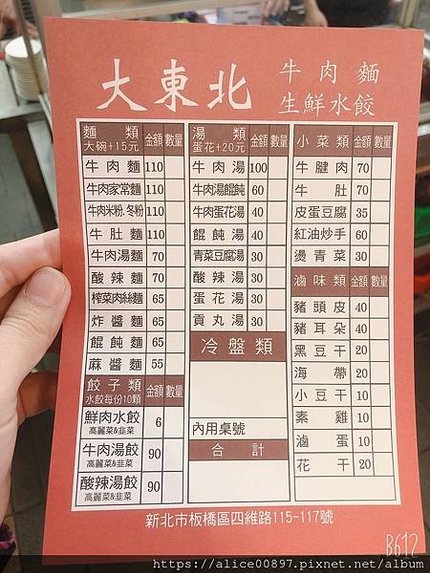 大東北
牛肉麵
生鮮水餃
麵類 大碗+15元 金額 數量
牛肉麵 110
牛肉家常麵 110
牛肉米粉.冬粉 110
牛肚麵 110
牛肉湯麵 70
酸辣麵 70
榨菜肉絲麵 65
炸醬麵 65
餛飩麵 65
麻醬麵 55
餃子類 水餃每份10顆 金額 數量
鮮肉水餃 高麗菜&韭菜 6
牛肉湯餃 高麗菜&韭菜 90
酸辣湯餃 高麗菜&韭菜 90
湯類 蛋花+20元 金額 數量
牛肉湯 100
牛肉湯餛飩 60
牛肉蛋花湯 40
餛飩湯 40
青菜豆腐湯 30
酸辣湯 30
蛋花湯 30
貢丸湯 30
冷盤類
內用桌號
合計
小菜類 金額 數量
牛腱肉 70
牛肚 70
皮蛋豆腐 35
紅油炒手 60
燙青菜 30
滷味類 金額 數量
豬頭皮 40
豬耳朵 40
黑豆干 20
海帶 20
小豆干 10
素雞 10
滷蛋 10
花干 20
新北市板橋區四維路115-117號
B612
https://alice00897.pixnet.net/album